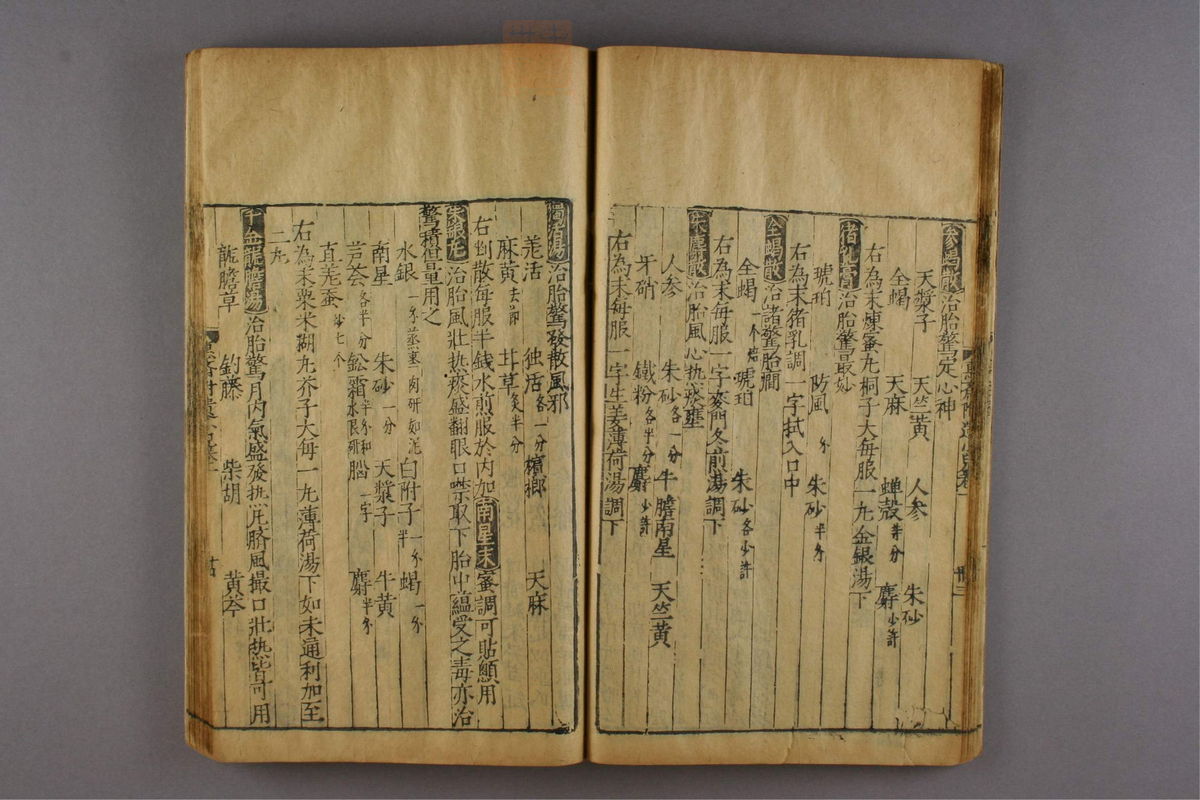 参蝎散 治胎驚定心神
天漿子 天竺黄 人参 朱砂
全蝎 天麻 蝉殻 等分 麝 少許
右為末煉蜜丸桐子大每服一丸金銀湯下
猪乳膏 治胎驚最妙
琥珀 防風 朱砂 半分
右為末猪乳調一字拭入口中
全蝎散 治諸驚胎癇
全蝎 琥珀 朱砂 各少許
右為末每服一字麥門冬煎湯調下
朱麝散 治胎風心热痰壅
人参 朱砂 各一分 牛膽南星 天竺黄
牙硝 鐵粉 各半分 麝 少許
右為末每服一字生姜薄荷湯調下
獨活湯 治胎驚發散風邪
羌活 独活 各一分 檳榔 天麻
麻黄 去節 甘草 炙半分
右剉散每服半錢水煎服於内加南星末蜜調可貼顖用
朱銀丸 治胎風壯热痰盛翻眼口噤取下胎中蘊受之毒亦治
驚積但量用之
水銀 一分蒸棗肉研如泥 白附子 一分半 蝎 一分
南星 朱砂 一分 天漿子 牛黄
芦薈 各半分 鈆霜 半分和水銀研 腦 一字 麝 半分
直羌蚕 炒七个
右為末粟米糊丸芥子大每一丸薄荷湯下如未通利加至
二丸
千金龍膽湯 治胎驚月内氣盛發热臍風撮口壯热皆可用
龍膽草 釣藤 柴胡 黄芩